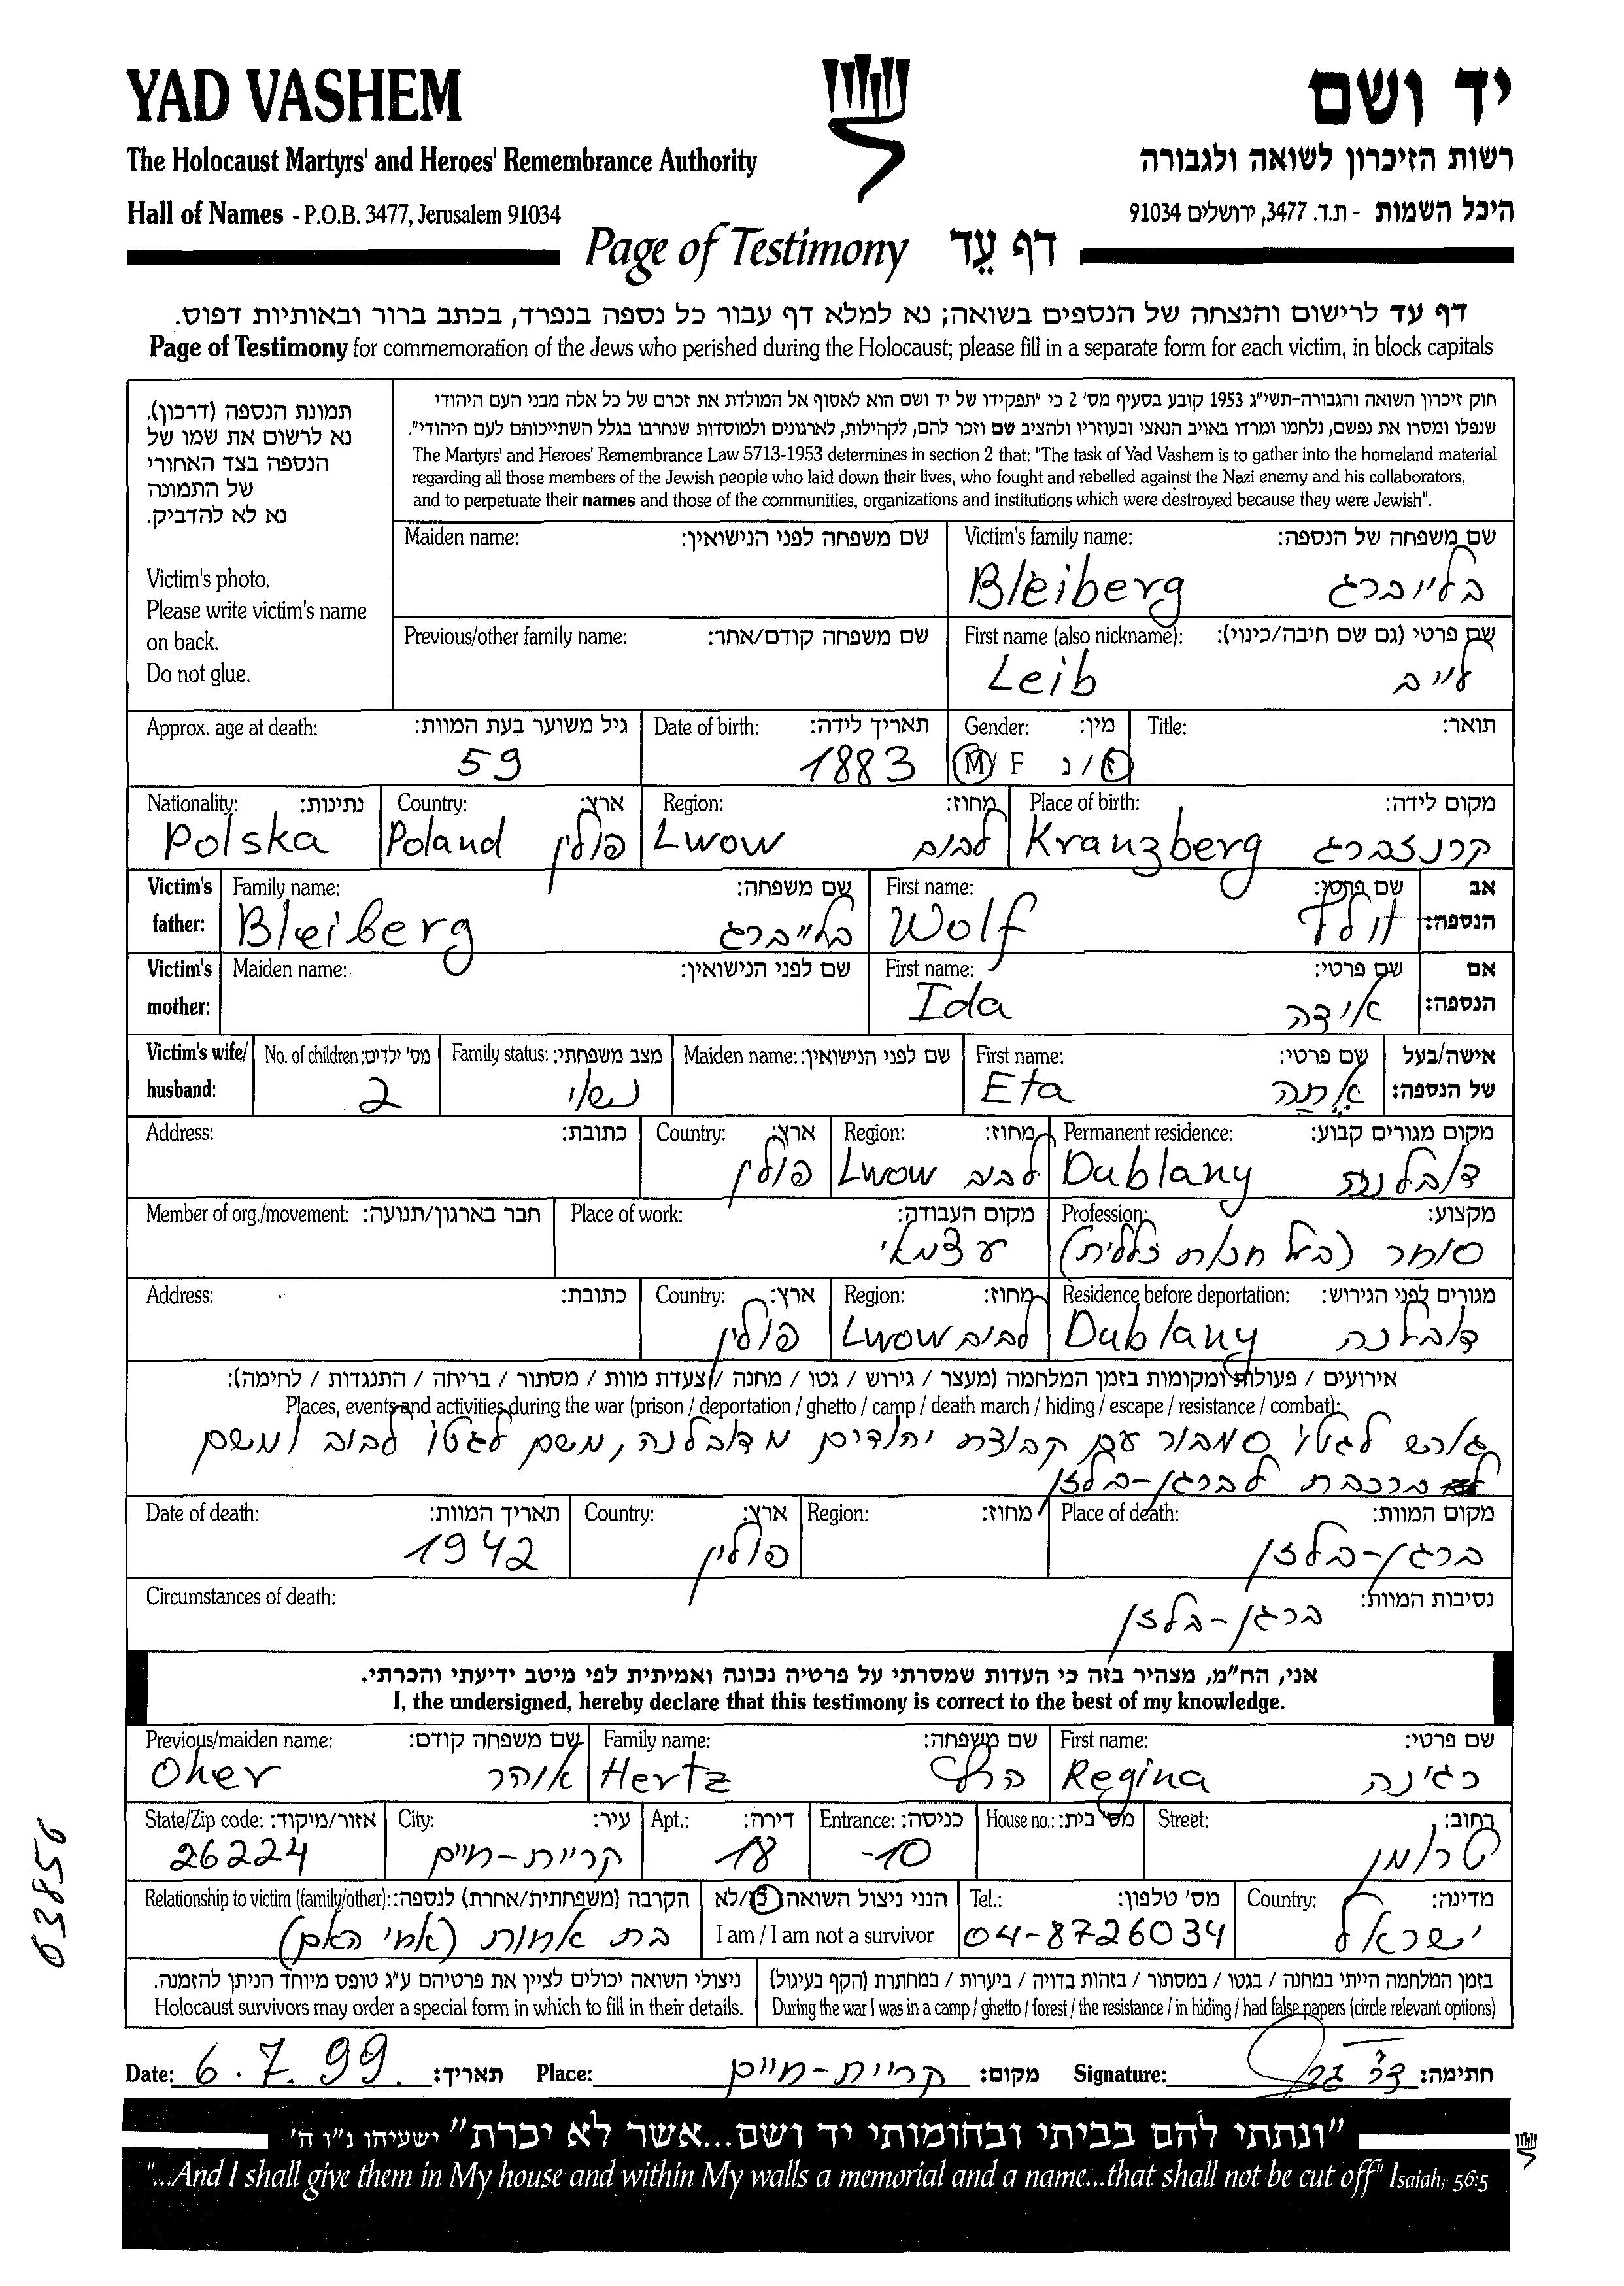 YAD VASHEM
יד ושם
The Holocaust Martyrs' and Heroes' Remembrance Authority
רשות הזיכרון לשואה ולגבורה
Hall of Names - P.O.B. 3477, Jerusalem 91034
היכל השמות - ת.ד. 3477, ירושלים 91034
Page of Testimony דף עֵד
דף עד לרישום והנצחה של הנספים בשואה; נא למלא דף עבור כל נספה בנפרד, בכתב ברור ובאותיות דפוס.
Page of Testimony for commemoration of the Jews who perished during the Holocaust; please fill in a separate form for each victim, in block capitals
תמונת הנספה (דרכון).
נא לרשום את שמו של
הנספה בצד האחורי
של התמונה
נא לא להדביק.
Victim's photo.
Please write victim's name
on back.
Do not glue.
חוק זיכרון השואה והגבורה-תשי"ג 1953 קובע בסעיף מס' 2 כי "תפקידו של יד ושם הוא לאסוף אל המולדת את זכרם של כל אלה מבני העם היהודי
שנפלו ומסרו את נפשם, נלחמו ומרדו באויב הנאצי ובעוזריו ולהציב שם וזכר להם, לקהילות, לארגונים ולמוסדות שנחרבו בגלל השתייכותם לעם היהודי".
The Martyrs' and Heroes' Remembrance Law 5713-1953 determines in section 2 that: "The task of Yad Vashem is to gather into the homeland material
regarding all those members of the Jewish people who laid down their lives, who fought and rebelled against the Nazi enemy and his collaborators,
and to perpetuate their names and those of the communities, organizations and institutions which were destroyed because they were Jewish".
Maiden name: שם משפחה לפני הנישואין:
Victim's family name: שם משפחה של הנספה:
Bleiberg בלייברג
Previous/other family name: שם משפחה קודם/אחר:
First name (also nickname): שם פרטי (גם שם חיבה/כינוי):
Leib לייב
Approx. age at death: גיל משוער בעת המוות:
59
Date of birth: תאריך לידה:
1883
Gender: מין:
M/ F ז / נ
Title: תואר:
Nationality: נתינות:
Polska
Country: ארץ:
Poland פולין
Region: מחוז:
Lwow לבוב
Place of birth: מקום לידה:
Kranzberg קרנצברג
Victim's father: Family name: שם משפחה:
Bleiberg בלייברג
First name: שם פרטי: אב הנספה:
Wolf וולף
Victim's mother: Maiden name: שם לפני הנישואין:
First name: שם פרטי: אם הנספה:
Ida אידה
Victim's wife/ husband: No. of children: מס' ילדים:
2
Family status: מצב משפחתי:
נשוי
Maiden name: שם לפני הנישואין:
First name: שם פרטי: אישה/בעל של הנספה:
Eta אֶתָה
Address: כתובת:
Country: ארץ:
פולין
Region: מחוז:
Lwow לבוב
Permanent residence: מקום מגורים קבוע:
Dublany דובלנה
Member of org./movement: חבר בארגון/תנועה:
Place of work: מקום העבודה:
עצמאי
Profession: מקצוע:
סוחר (בעל חנות כללית)
Address: כתובת:
Country: ארץ:
פולין
Region: מחוז:
Lwow לבוב
Residence before deportation: מגורים לפני הגירוש:
Dublany דובלנה
אירועים / פעולות ומקומות בזמן המלחמה (מעצר / גירוש / גטו / מחנה / צעדת מוות / מסתור / בריחה / התנגדות / לחימה):
Places, events and activities during the war (prison / deportation / ghetto / camp / death march / hiding / escape / resistance / combat):
גורש לגטו סמבור עם קבוצת יהודים מדובלנה, משם לגטו לבוב ומשם
ברכבת לברגן-בלזן
Date of death: תאריך המוות:
1942
Country: ארץ:
פולין
Region: מחוז:
Place of death: מקום המוות:
ברגן-בלזן
Circumstances of death: נסיבות המוות:
ברגן-בלזן
אני, הח"מ, מצהיר בזה כי העדות שמסרתי על פרטיה נכונה ואמיתית לפי מיטב ידיעתי והכרתי.
I, the undersigned, hereby declare that this testimony is correct to the best of my knowledge.
Previous/maiden name: שם משפחה קודם:
Oher אוהר
Family name: שם משפחה:
Hertz הרץ
First name: שם פרטי:
Regina רגינה
State/Zip code: אזור/מיקוד:
26224
City: עיר:
קריית-חיים
Apt.: דירה:
18
Entrance: כניסה:
-10
House no.: מס' בית:
Street: רחוב:
טרומן
Relationship to victim (family/other): הקרבה (משפחתית/אחרת) לנספה:
בת אחות (אחי האם)
הנני ניצול השואה: כן/לא
I am / I am not a survivor
Tel.: מס' טלפון:
04-8726034
Country: מדינה:
ישראל
ניצולי השואה יכולים לציין את פרטיהם ע"ג טופס מיוחד הניתן להזמנה.
Holocaust survivors may order a special form in which to fill in their details.
בזמן המלחמה הייתי במחנה / בגטו / במסתור / בזהות בדויה / ביערות / במחתרת (הקף בעיגול)
During the war I was in a camp / ghetto / forest / the resistance / in hiding / had false papers (circle relevant options)
Date: 6.7.99. תאריך: Place: קריית-חיים מקום: Signature: חתימה:
"ונתתי להם בביתי ובחומותי יד ושם...אשר לא יכרת" ישעיהו נ"ו ה'
"...And I shall give them in My house and within My walls a memorial and a name...that shall not be cut off" Isaiah, 56:5
03856